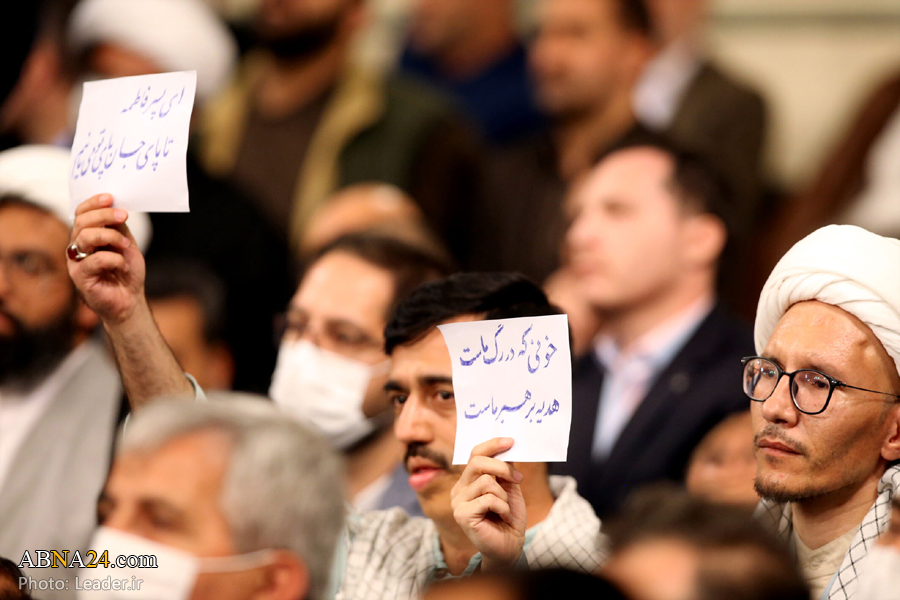 ای پسر فاطمه
تا پای جان پای تو می مانیم
خونی که در رگ ماست
هدیه به رهبر ماست
ABNA24.com
Photo: Leader.ir